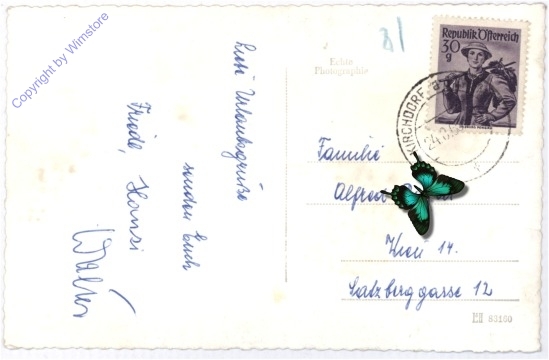 Copyright by Wimstore
Liebe Urlaubsgrüße
senden Euch
Friedl, Hansi
Walter
B/
Echte
Photographie
Republik Österreich
30
g
KIRCHDORF
Familie
Alfred
Wien 14.
Satzberggasse 12
83160